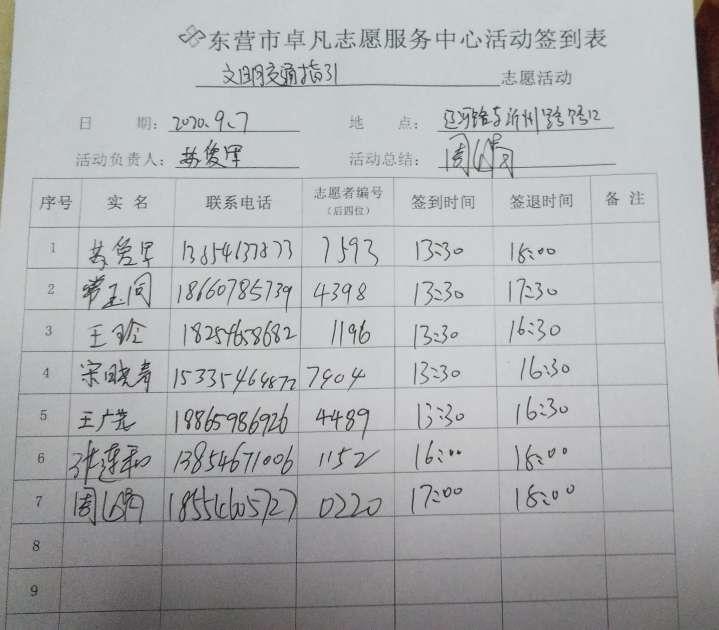 东营市卓凡志愿服务中心活动签到表
文明交通指引 志愿活动
日 期: 2020.9.7 地 点: 辽河路与沂州路
活动负责人: 苏俊军 活动总结: 周
序号 实 名 联系电话 志愿者编号 (后四位) 签到时间 签退时间 备 注
1 7593 13:30 18:00
2 常玉同 18660785739 4398 13:30 17:30
3 王玲 18254658682 1196 13:30 16:30
4 宋晓青 15335464872 7904 13:30 16:30
5 王广 18865986926 4489 13:30 16:30
6 张连和 13854671006 1152 16:00 18:00
7 周 18554605727 0220 17:00 18:00
8
9